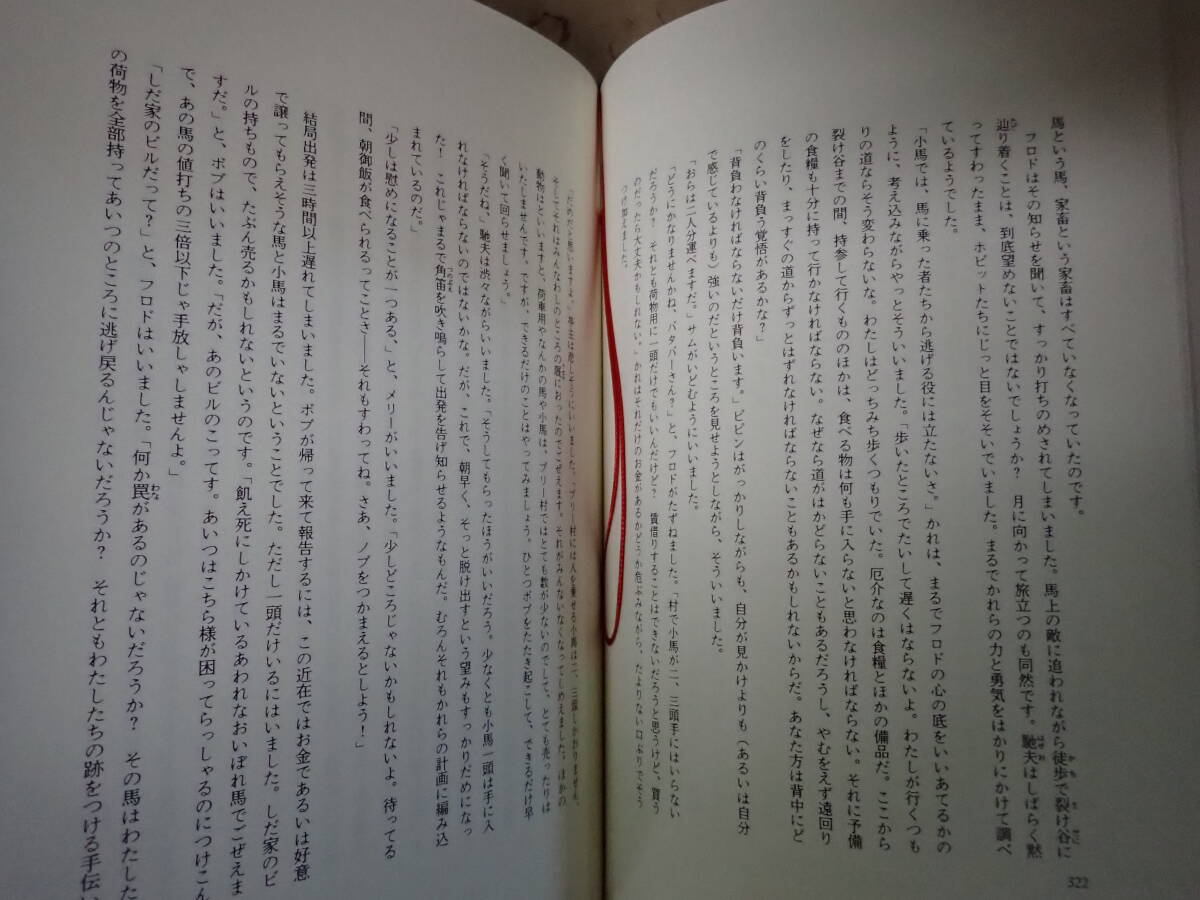 馬という馬、家畜という家畜はすべていなくなっていたのです。
フロドはその知らせを聞いて、すっかり打ちのめされてしまいました。馬上の敵に追われながら徒歩で裂け谷に
辿り着くことは、到底望めないことではないでしょうか? 月に向かって旅立つのも同然です。馳夫はしばらく黙
ってすわったまま、ホビットたちにじっと目をそそいでいました。まるでかれらの力と勇気をはかりにかけて調べ
ているようでした。
「小馬では、馬に乗った者たちから逃げる役には立たないさ。」かれは、まるでフロドの心の底をいいあてるかの
ように、考え込みながらやっとそういいました。「歩いたところでたいして遅くはならないよ。わたしが行くつも
りの道ならそう変わらないな。わたしはどっちみち歩くつもりでいた。厄介なのは食糧とほかの備品だ。ここから
裂け谷までの間、持参して行くもののほかは、食べる物は何も手に入らないと思わなければならない。それに予備
の食糧も十分に持って行かなければならない。なぜなら道がはかどらないこともあるだろうし、やむをえず遠回り
をしたり、まっすぐの道からずっとはずれなければならないこともあるかもしれないからだ。あなた方は背中にど
のくらい背負う覚悟があるかな?」
「背負わなければならないだけ背負います。」ピピンはがっかりしながらも、自分が見かけよりも(あるいは自分
で感じているよりも)強いのだというところを見せようとしながら、そういいました。
「おらは二人分運べますだ。」サムがいどむようにいいました。
「どうにかなりませんかね、バタバーさん?」と、フロドがたずねました。「村で小馬が二、三頭手にはいらない
だろうか? それとも荷物用に一頭だけでもいいんだけど? 賃借りすることはできないだろうと思うけど、買う
のだったら大丈夫かもしれない。」かれはそれだけのお金があるかどうか危ぶみながら、たよりない口ぶりでそう
つけ加えました。
「だめだと思いますよ。」亭主は悲しそうにいいました。「ブリー村には人を乗せる小馬は二、三頭しかおりません。
そしてそれはみんなわしのところの厩におったのでごぜえます。それがみんないなくなってしめえました。ほかの
動物はといいますと、荷車用やなんかの馬や小馬は、ブリー村ではとても数が少ないのでして、とても売ったりは
いたしませんです。ですが、できるだけのことはやってみましょう。ひとつボブをたたき起こして、できるだけ早
く聞いて回らせましょう。」
「そうだね、」馳夫は渋々ながらいいました。「そうしてもらったほうがいいだろう。少なくとも小馬一頭は手に入
れなければならないのではないかな。だが、これで、朝早く、そっと脱け出すという望みもすっかりだめになっ
た! これじゃまるで角笛を吹き鳴らして出発を告げ知らせるようなもんだ。むろんそれもかれらの計画に編み込
まれているのだ。」
「少しは慰めになることが一つある、」と、メリーがいいました。「少しどころじゃないかもしれないよ。待ってる
間、朝御飯が食べられるってことさ――それもすわってね。さあ、ノブをつかまえるとしよう!」
結局出発は三時間以上遅れてしまいました。ボブが帰って来て報告するには、この近在ではお金であるいは好意
で譲ってもらえそうな馬と小馬はまるでいないということでした。ただし一頭だけいるにはいました。しだ家のビ
ルの持ちもので、たぶん売るかもしれないというのです。「飢え死にしかけているあわれなおいぼれ馬でごぜえま
すだ。」と、ボブはいいました。「だが、あのビルのこってす。あいつはこちら様が困ってらっしゃるのにつけこん
で、あの馬の値打ちの三倍以下じゃ手放しゃしませんよ。」
「しだ家のビルだって?」と、フロドはいいました。「何か罠があるのじゃないだろうか? その馬はわたした
の荷物を全部持ってあいつのところに逃げ戻るんじゃないだろうか? それともわたしたちの跡をつける手伝い
322